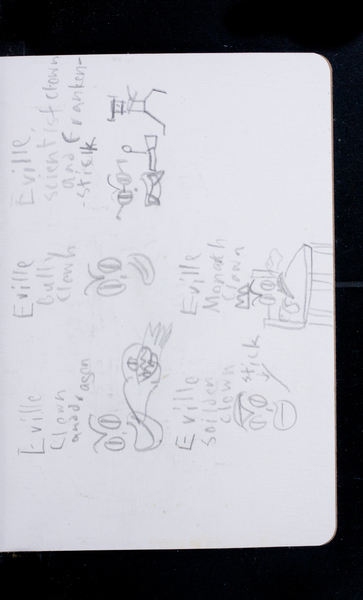 Eville
Clown
anddragon
Eville
bully
Clown
Eville,
scientist clown
and Franken-
Eville
soilder
clown
stick
Eville
Monach
Clown